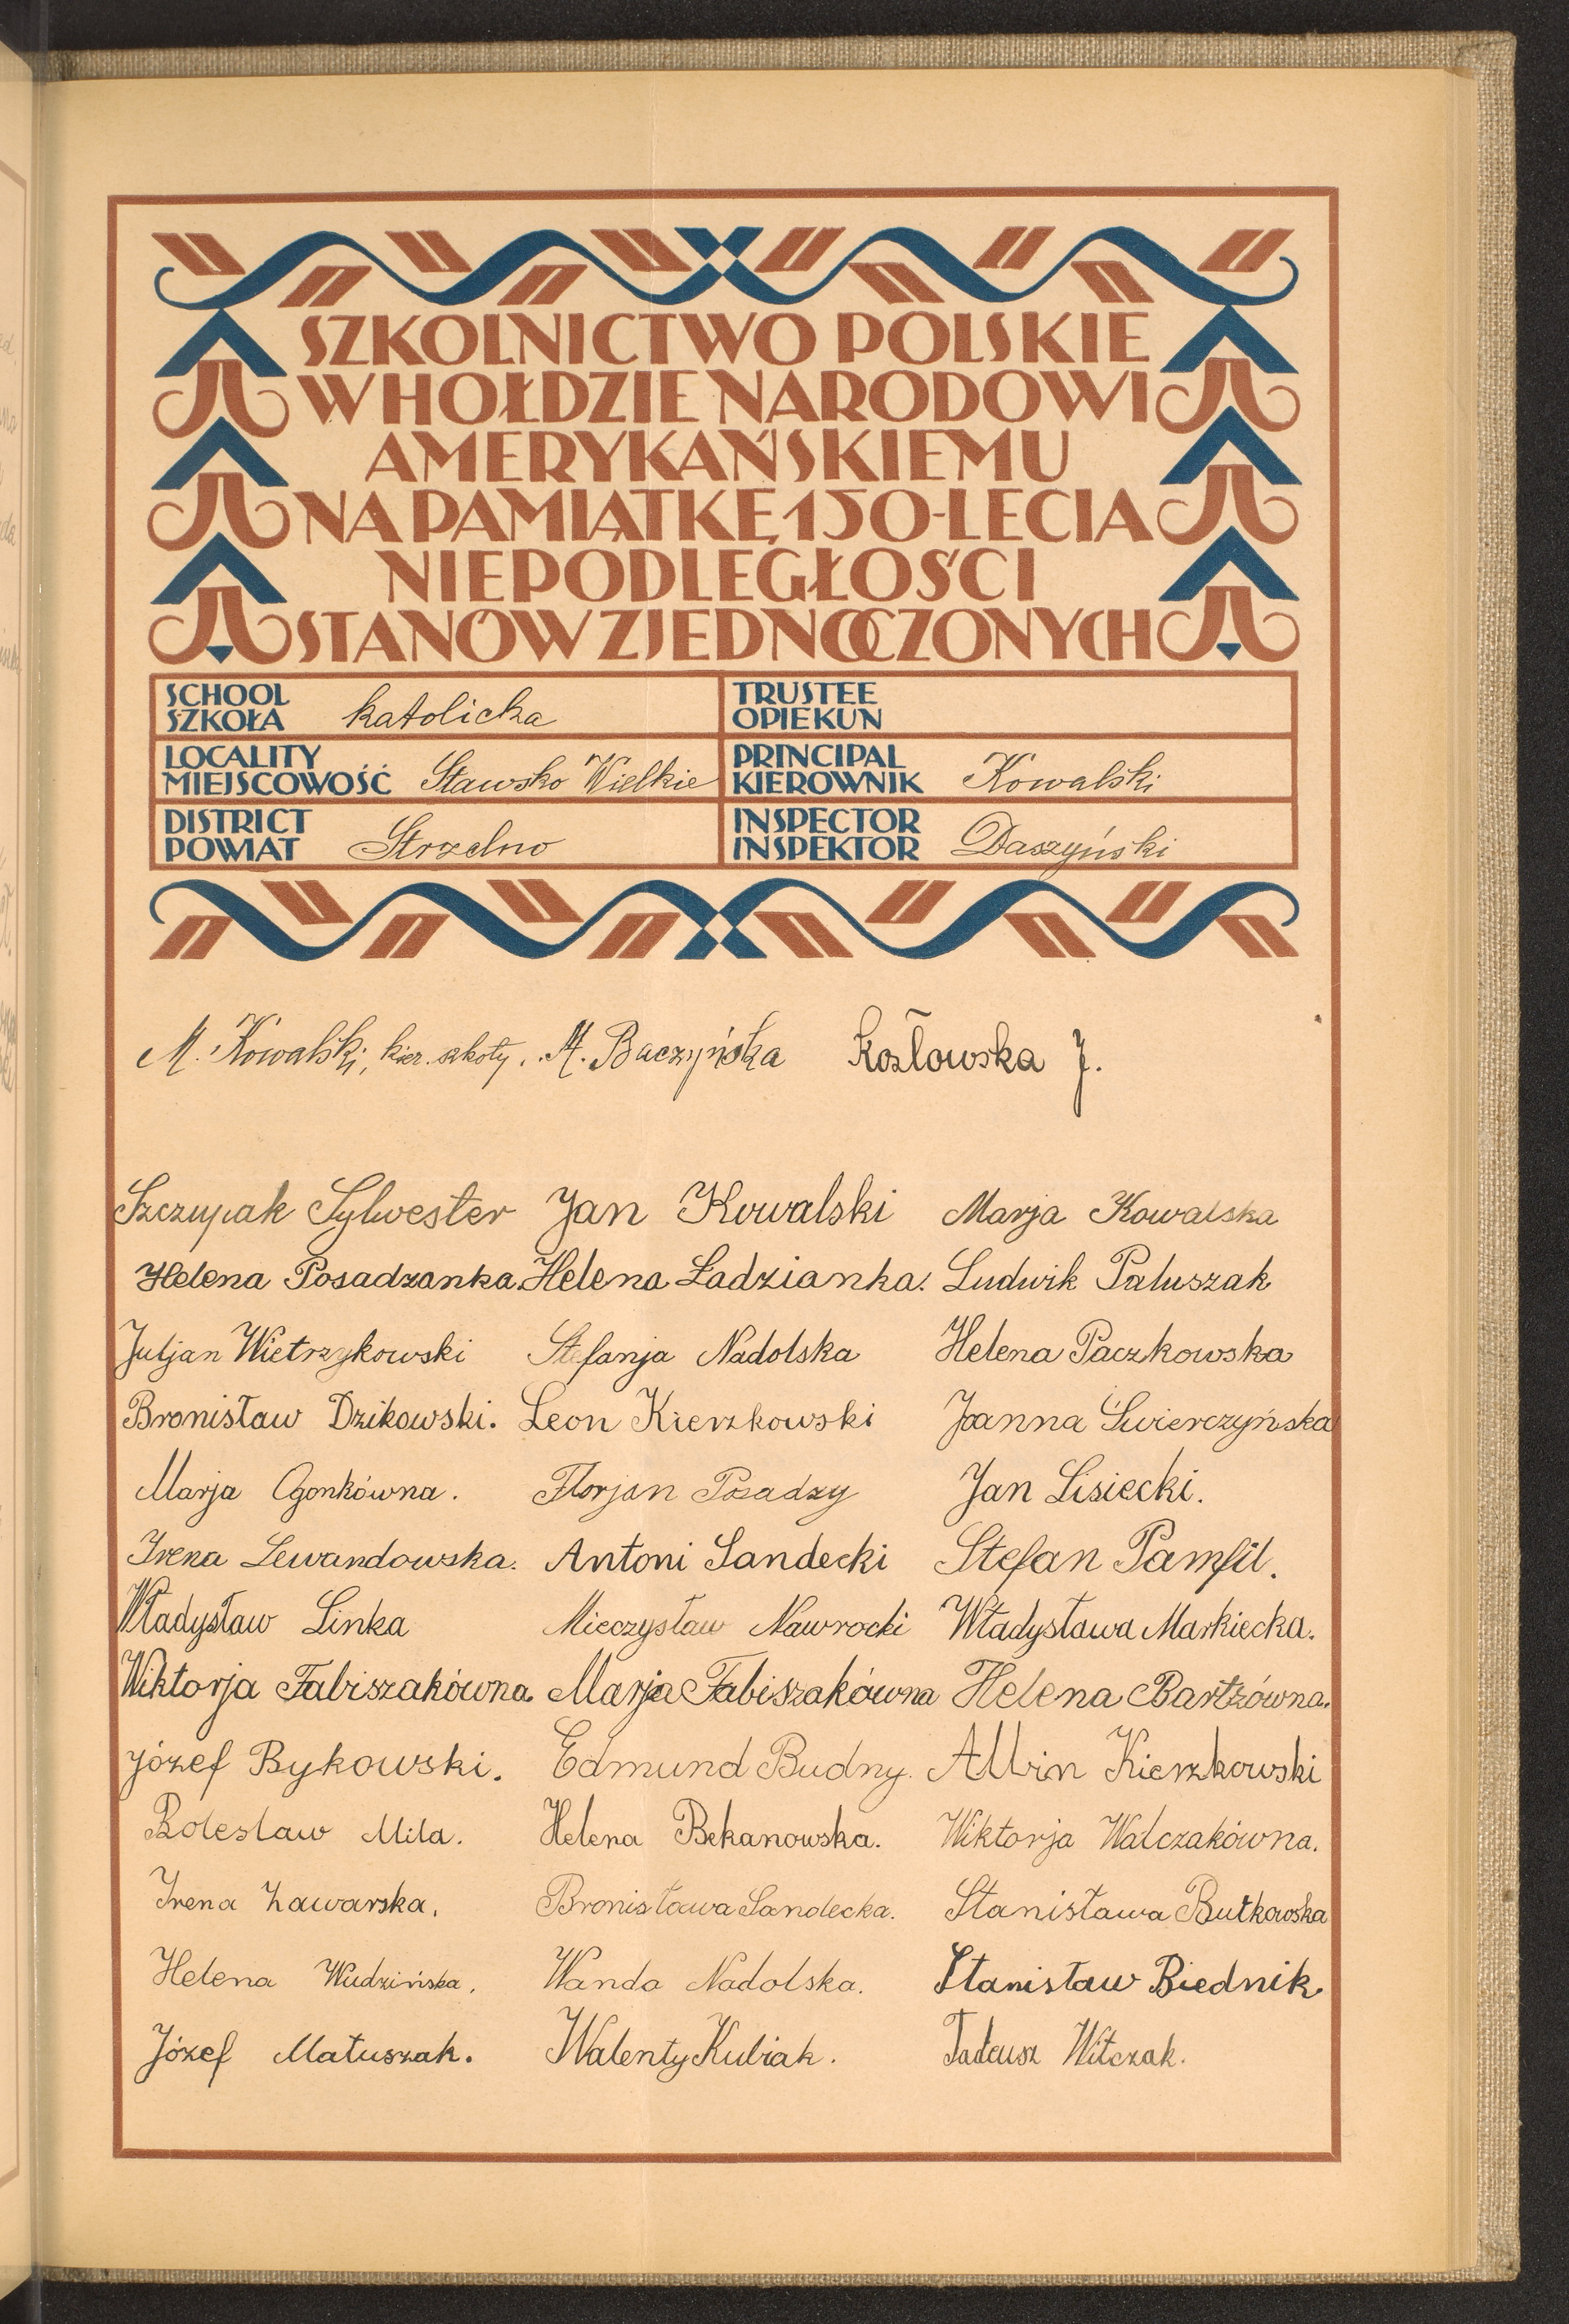 SZKOLNICTWO POLSKIE
W HOŁDZIE NARODOWI
AMERYKAŃSKIEMU
NA PAMIĄTKĘ 150-LECIA
NIEPODLEGŁOŚCI
STANÓW ZJEDNOCZONYCH
SCHOOL
SZKOŁA katolicka
TRUSTEE
OPIEKUN
LOCALITY
MIEJSCOWOŚĆ Sławsko Wielkie
PRINCIPAL
KIEROWNIK Kowalski
DISTRICT
POWIAT Strzelno
INSPECTOR
INSPEKTOR Daszyński
M. Kowalski, kier. szkoły. M. Baczyńska Kozłowska J.
Szczupak Sylwester Jan Kowalski Marja Kowalska
Helena Posadzanka. Helena Ładzianka. Ludwik Paluszak
Juljan Wietrzykowski Stefanja Nadolska Helena Paczkowska
Bronisław Dzikowski. Leon Kierzkowski Joanna Świerczyńska
Marja Ogonkówna. Florjan Posadzy Jan Lisiecki.
Irena Lewandowska. Antoni Sandecki Stefan Pamfil.
Władysław Linka Mieczysław Nawrocki Władysława Markiecka.
Wiktorja Fabiszakówna. Marja Fabiszakówna Helena Bartzówna.
Józef Bykowski. Edmund Budny. Albin Kierzkowski
Bolesław Mila. Helena Bekanowska. Wiktorja Walczakówna.
Irena Zawarska. Bronisława Sandecka. Stanisława Butkowska
Helena Wudzińska. Wanda Nadolska. Stanisław Biednik.
Józef Matuszak. Walenty Kubiak. Tadeusz Witczak.